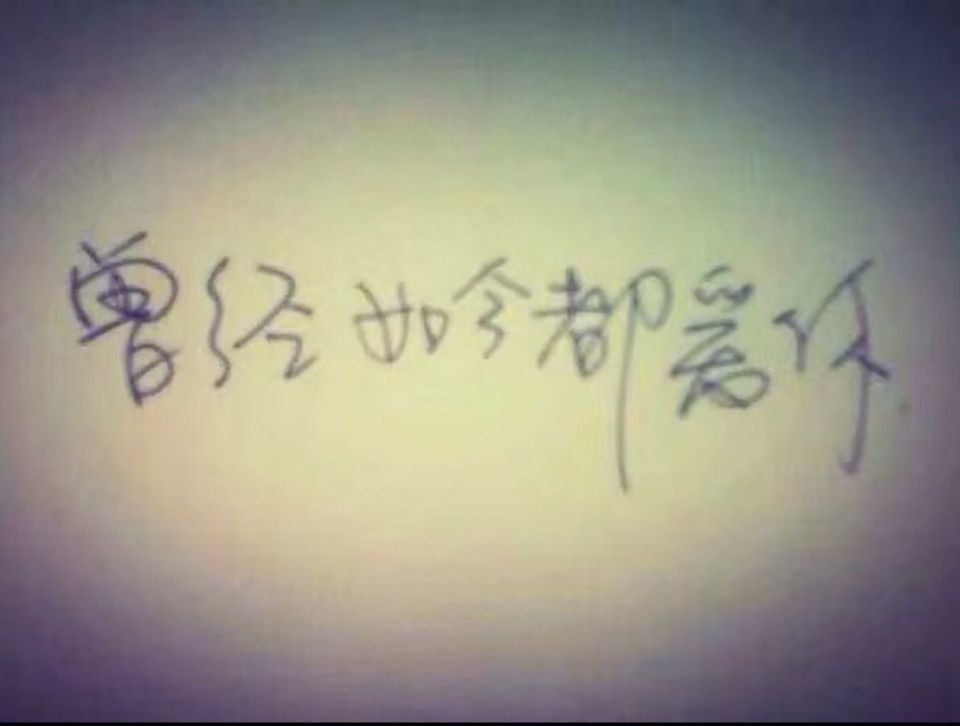 曾经如今都爱你